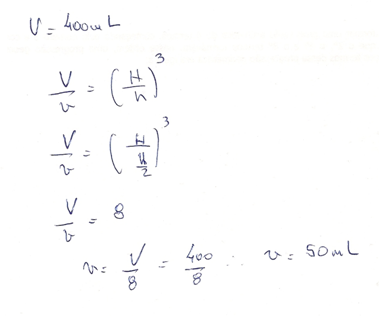 V = 400mL
V/v = (H/h)^3
V/v = (H/(H/2))^3
V/v = 8
v = V/8 = 400/8 ∴ v = 50mL